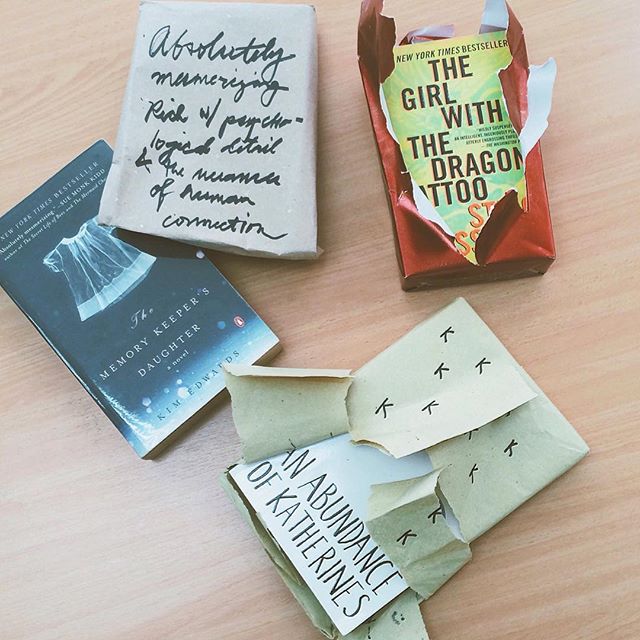 Absolutely
mesmerizing
Rich w/ psycho-
logical detail
& the nuances
of human
connection
NEW YORK TIMES BESTSELLER
THE
GIRL
WITH
THE
DRAGON
ATTOO
ST
"WILDLY SUSPENSEFUL
AN INTELLIGENT, INGENIOUSLY
UTTERLY ENGROSSING THRIL
THE WASHINGTON
A NEW YORK TIMES BESTSELLER
"Absolutely mesmerizing." —SUE MONK KIDD
author of The Secret Life of Bees and The Mermaid Chair
The
MEMORY KEEPER'S
DAUGHTER
a novel
KIM EDWARDS
K
K
K
K
K
K
K
K
K
K
K
AN ABUNDANCE
OF KATHERINES